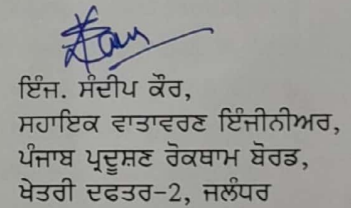 ਇੰਜ. ਸੰਦੀਪ ਕੌਰ,
ਸਹਾਇਕ ਵਾਤਾਵਰਣ ਇੰਜੀਨੀਅਰ,
ਪੰਜਾਬ ਪ੍ਰਦੂਸ਼ਣ ਰੋਕਥਾਮ ਬੋਰਡ,
ਖੇਤਰੀ ਦਫਤਰ-2, ਜਲੰਧਰ